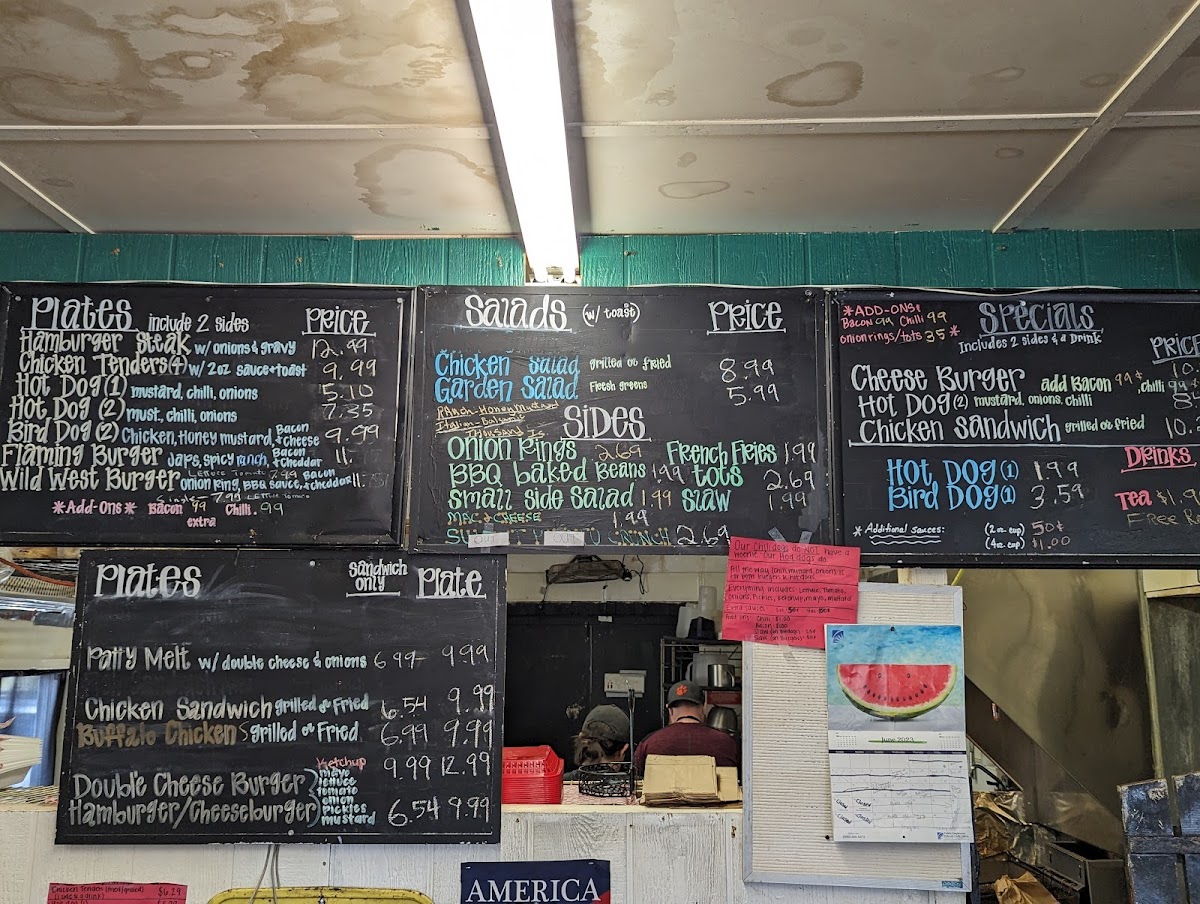 Plates include 2 sides Price
Hamburger Steak w/ onions & gravy 12.99
Chicken Tenders (4) w/ 2oz sauce + toast 9.99
Hot Dog (1) mustard, chilli, onions 5.10
Hot Dog (2) must, chilli, onions 7.35
Bird Dog (2) Chicken, Honey mustard, Bacon & cheese 9.99
Flaming Burger Japs, spicy ranch, Bacon & cheddar 11.
Wild West Burger onion ring, BBQ sauce, Bacon & cheddar 11.
*Add-Ons* Bacon 99 Chilli .99
extra
Salads (w/ toast) Price
Chicken Salad grilled or fried 8.99
Garden Salad Fresh greens 5.99
Ranch-Honey Mustard
Italian-Balsamic
Thousand Is
Sides
Onion Rings 2.69 French Fries 1.99
BBQ Baked Beans 1.99 Tots 2.69
Small Side Salad 1.99 Slaw 1.99
Mac & Cheese 1.99
CRUNCH 2.69
*ADD-ONS:
Bacon 99 Chilli 99
onion rings/tots 35*
Specials
Includes 2 sides & a Drink
Price
Cheese Burger add Bacon 99¢, chilli 99
Hot Dog (2) mustard, onions, chilli
Chicken Sandwich grilled or fried 10.
Hot Dog (1) 1.99
Bird Dog (1) 3.59
Drinks
Tea $1.9
Free R
*Additional Sauces: (2oz cup) 50¢
(4oz cup) $1.00
Plates Sandwich only Plate
Patty Melt w/ double cheese & onions 6.99 9.99
Chicken Sandwich grilled or Fried 6.54 9.99
Buffalo Chicken S grilled or Fried 6.99 9.99
Double Cheese Burger 9.99 12.99
Hamburger/Cheeseburger 6.54 9.99
Ketchup
mayo
lettuce
tomato
onion
pickles
mustard
Our Chilidogs do NOT have a
weenie. Our Hot dogs do.
All the way: chili, mustard, onions is
for both burgers & hotdogs
Everything includes: Lettuce, Tomato,
onions, Pickles, ketchup, mayo, mustard
June 2023
Chicken Tenders $6.29
AMERICA